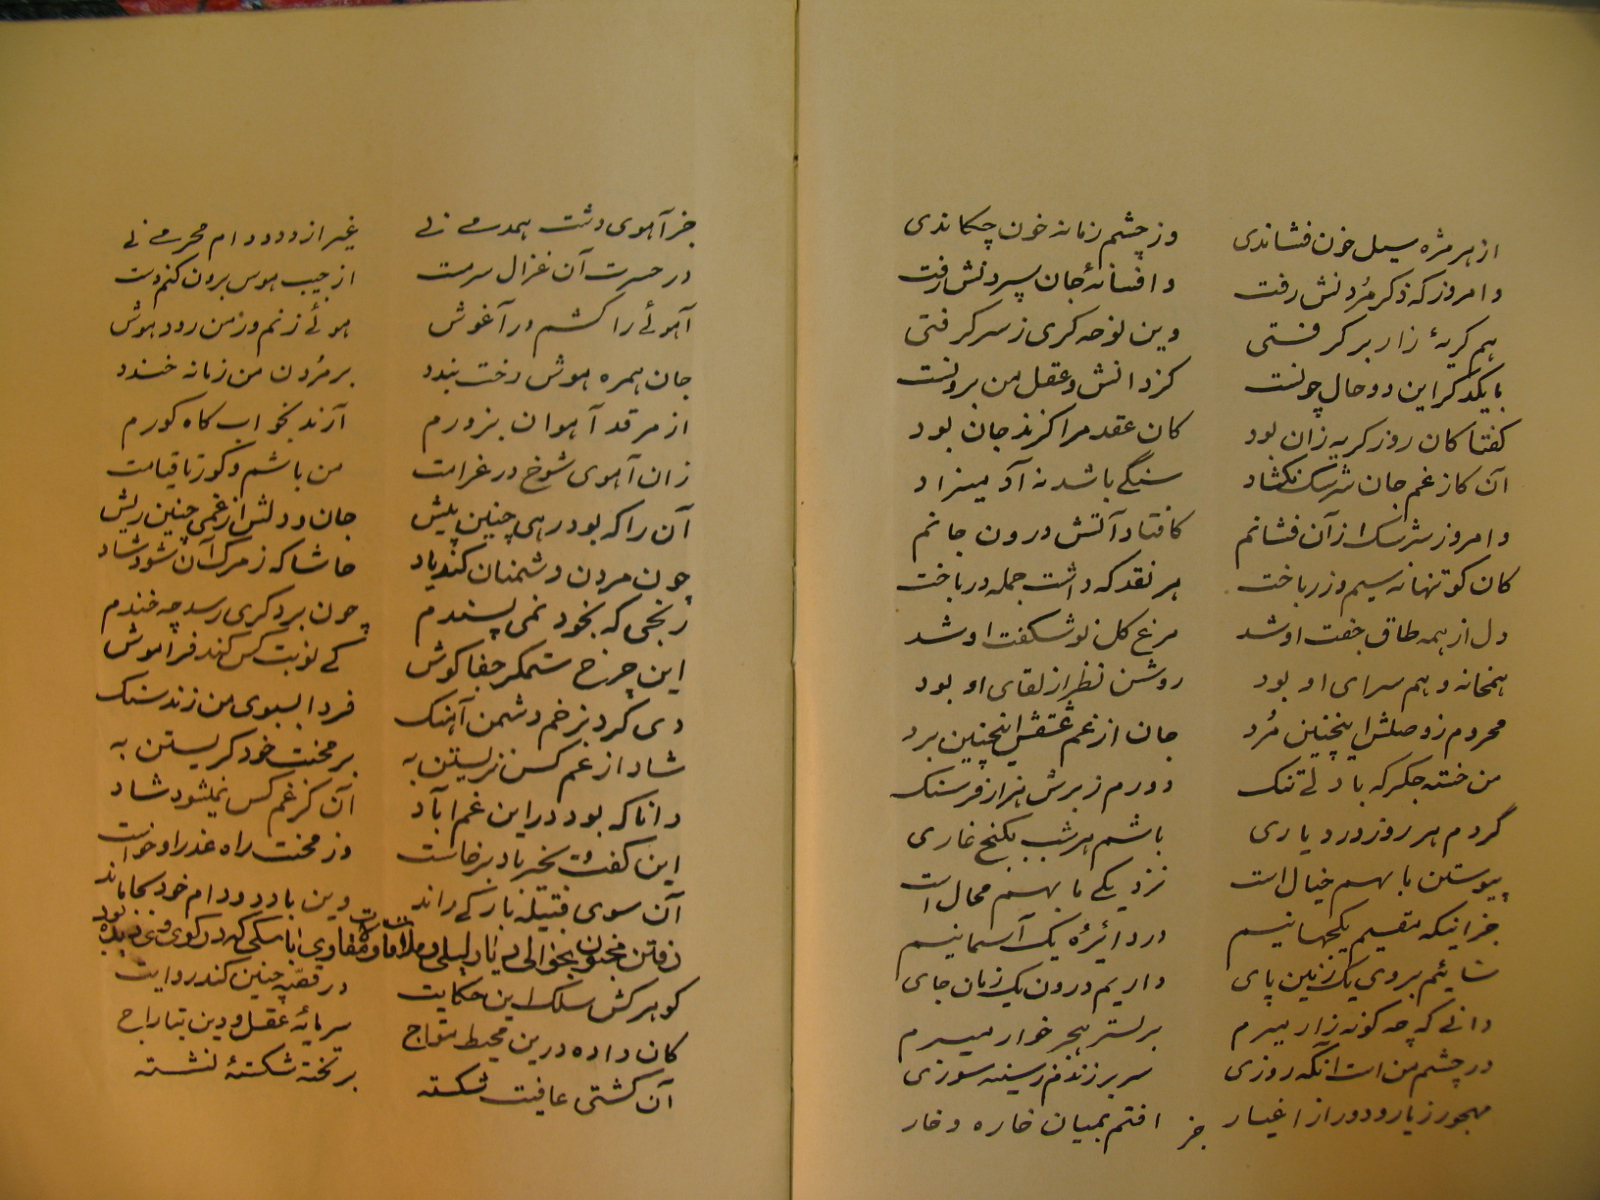 از هر مژه سیل خون فشاندی وز چشم زمانه خون چکاندی
وامروز که ذکر مُردنش رفت وافسانهٔ جان سپردنش رفت
هم گریهٔ زار بر گرفتی وین نوحه گری ز سر گرفتی
با یکدگر این دو حال چونست کز دانش و عقل من برونست
گفتا کان روز گریه زان بود کان عقد مرا گزند جان بود
آن کاز غم جان سرشک نگشاد سنگی باشد نه آدمیزاد
وامروز سرشک از آن فشانم کافتاد آتش درون جانم
کان کو تنها نه سیم و زر باخت هر نقد که داشت جمله در باخت
دل از همه طاق جفت او شد مرغ گل نوشکفت او شد
همخانه و هم سرای او بود روشن نظر از لقای او بود
محروم ز وصلش اینچنین مُرد جان از غم عشقش اینچنین برد
من خسته جگر که با دلی تنگ دورم ز برش هزار فرسنگ
گردم هر روز در دیاری باشم هر شب بکنج غاری
پیوستن با بهم خیال است نزدیکی ما بهم محال است
جز اینکه مقیم یکجهانیم در دائرهٔ یک آسمانیم
شائیم بروی یک زمین پای داریم درون یک زمان جای
دانی که چه گونه زار میرم بر بستر هجر خوار میرم
در چشم من است آنکه روزی سر برزندم ز سینه سوزی
مهجور ز یار و دور از اغیار افتم بمیان خاره و خار
جز
جز آهوی دشت همدمی نی غیر از دد و دام محرمی نی
در حسرت آن غزال سرمست از جیب هوس برون کنم دست
آهوئی را کشم در آغوش هوئی زنم و ز من رود هوش
جان همره هوش رخت بندد بر مُردن من زمانه خندد
از مرقد آهوان بزورم آرند بخوابگاه گورم
زان آهوی شوخ در غرامت من باشم و گور تا قیامت
آن را که بود رهی چنین پیش جان و دلش از غمی چنین ریش
چون مردن دشمنان کند یاد حاشا که ز مرگ آن شود شاد
رنجی که بخود نمی پسندم چون بر دگری رسد چه خندم
این چرخ ستمگر جفا کوش کی نوبت کس کند فراموش
دی کرد بزخم دشمن آهنگ فردا بسبوی من زند سنگ
شاد از غم کس نزیستن به بر محنت خود گریستن به
دانا که بود در این غم آباد آن کز غم کس نمیشود شاد
این گفت و بخیر باد برخاست وز محنت راه عذر او خواست
آن سوی قبیله بارگی راند وین با دد و دام خود بجا ماند
رفتن مجنون بحوالی دیار لیلی و ملاقات وی با سگی که در کوی وی دیده بود
گوهرکش سلک این حکایت در قصه چنین کند روایت
کان داده درین محیط مواج سرمایهٔ عقل و دین بتاراج
آن کشتی عافیت شکسته بر تختهٔ شکستهٔ نشسته